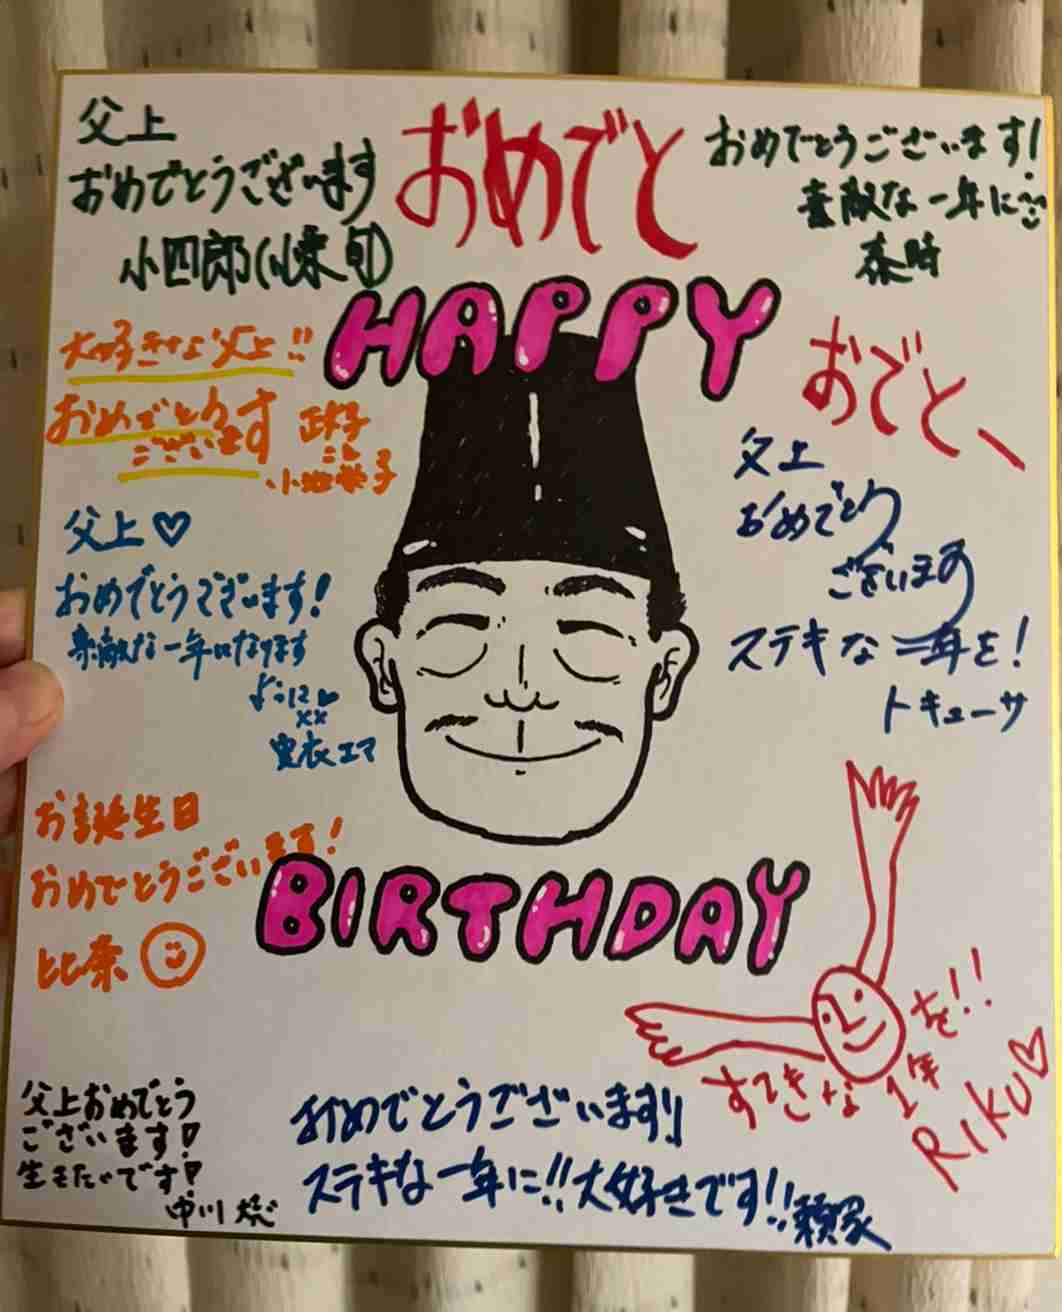 父上
おめでとうございます
小四郎(小栗旬)
おめでと
おめでとうございます!
素敵な一年に
HAPPY
大好きな父上!!
おめでとう
ございます
政子
小池栄子
おでと、
父上
おめでとう
ございます
ステキな一年を!
トキューサ
父上♡
おめでとうございます!
素敵な一年になります
ように♥
××
実衣エマ
お誕生日
おめでとうございます!
比奈
BIRTHDAY
すてきな1年を!!
RIKU♡
父上おめでとう
ございます!
生きたいです!
中川
おめでとうございます!!
ステキな一年に!!大好きです!!頼家